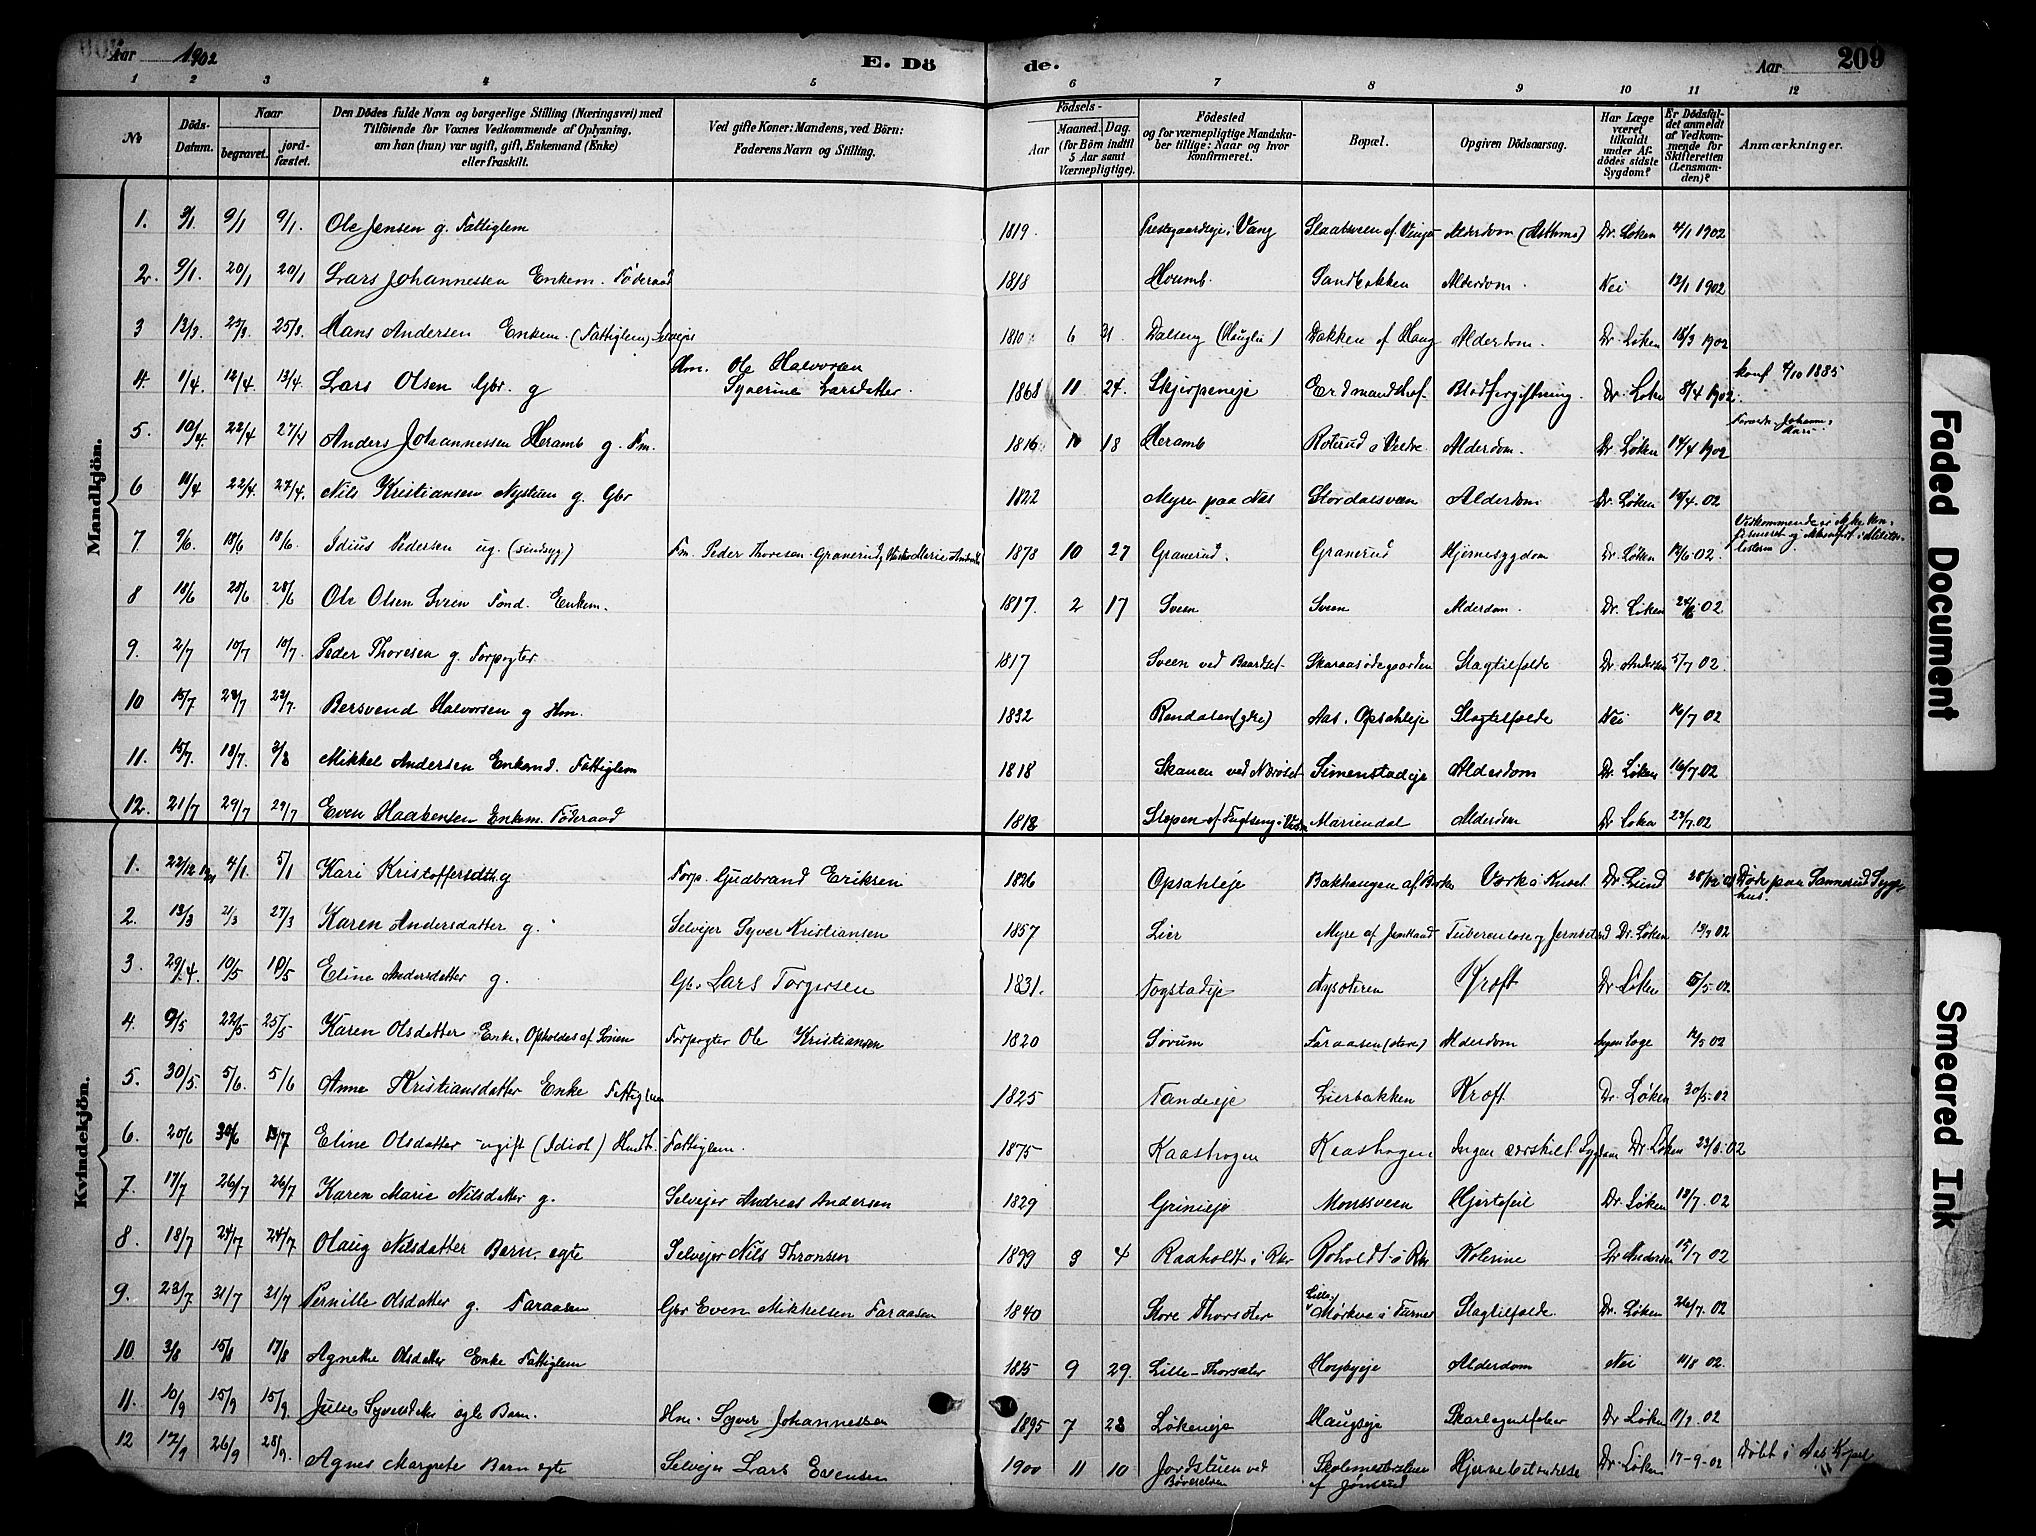 Aar 1902 E. Dö de. Aar 209
1 2 3 4 5 6 7 8 9 10 11 12
No
Döds-Datum.
Naar
begravet.
jord-fæstet.
Den Dödes fulde Navn og borgerlige Stilling (Næringsvei) med
Tilföiende for Voxnes Vedkommende af Oplysning,
om han (hun) var ugift, gift, Enkemand (Enke)
eller fraskilt.
Ved gifte Koner: Mandens, ved Börn:
Faderens Navn og Stilling.
Födsels-
Aar
Maaned. Dag.
(for Börn indtil
5 Aar samt
Værnepligtige).
Födested
og for værnepligtige Mandska-
ber tillige: Naar og hvor
konfirmeret.
Bopæl.
Opgiven Dödsaarsag.
Har Læge
været
tilkaldt
under Af-
dödes sidste
Sygdom?
Er Dödsfal-
det anmeldt
af Vedkom-
mende for
Skifteretten
(Lensman-
den)?
Anmærkninger.
Mandkjön.
1. 3/1 9/1 9/1. Ole Jensen g. Fattiglem 1819. Vang Alderdom (Asthma) Dr. Løken 4/1 1902
2. 9/1. 20/1 20/1 Lars Johannessen Enkem. Føderaad 1818 Houmb. Sandbakken Alderdom. Nei 12/1 1902
3 13/3 25/3. 25/3. Hans Andersen Enkem. (Fattiglem) Selvejer 1810 6 21. Dalseng (Hauglie) Bakken af Haug Alderdom. Dr. Løken 18/3 1902
4. 1/4 12/4. 13/4. Lars Olsen Gbr. g Hm. Ole Halvorsen
Syverine Larsdatter. 1868 11 24. Skjerpeneje Blodforgiftning. Dr. Løken 8/4 1902. konf 4/10 1885
5. 10/4. 22/4 27/4 Anders Johannessen Heramb g. Fm. 1816 10 18 Heramb Alderdom. Dr. Løken 14/4 1902
6 11/4 22/4. 27/4. Nils Kristiansen Nystuen g. Gbr 1822 Myre paa Næs Stordalsveen Alderdom Dr. Løken 14/4. 02
7 9/6. 18/6 18/6. Idius Pedersen ug. (sindsyg) Fm. Peder Thoresen Granerud 1878 10 27 Granerud. Granerud Hjernesygdom Dr. Løken 12/6. 02.
8 18/6 28/6 28/6 Ole Olsen Sveen Fönd. Enkem. 1817. 2 17 Sveen Sveen Alderdom. Dr. Løken 24/6 02
9. 2/7 10/7 10/7. Peder Thoresen g. Forpagter 1817 Sveen ved Skaraasödegaarden Slagtilfælde Dr. Andersen 5/7 02.
10 15/7 23/7 23/7. Bersvend Halvorsen g Hm. 1832 Rendalen Aas. Opsahleje Slagtilfælde Nei 16/7 02
11. 15/7. 18/7. 3/8 Mikkel Andersen Enkemd. Fattiglem 1818 Skanen ved Næroset Simenstadeje Alderdom Dr. Løken 16/7. 02
12. 21/7 29/7 29/7 Even Haakensen Enkem. Föderaad 1818 Mariendal Alderdom Dr. Løken 23/7. 02
Kvindekjön.
1. 22/12 1901 4/1 5/1 Kari Kristoffersdtr. g Forp. Gudbrand Eriksen 1826 Opsahleje Bakhaugen af Værk i Knæet. Dr. Lund 28/12 01 Döde paa Sannerud Syge-
hus.
2. 13/3 2/3 27/3 Karen Andersdatter g. Selvejer Syver Kristiansen 1857 Lier Myre af Tuberculose og Dr. Løken 13/3 02
3. 29/4. 10/5 10/5 Eline Andersdatter g. Gbr. Lars Torgersen 1831. Fogstadeje Nysæteren Kræft Dr. Løken 5/5 02
4. 9/5 22/5 25/5 Karen Olsdatter Enke. Opholdes af Sönnen Forpagter Ole Kristiansen 1820 Sörum Faraasen (store) Alderdom 12/5 02
5. 30/5. 5/6. 5/6 Anne Kristiansdatter Enke Fattiglem 1825 Tandeeje Lierbakken Kræft Dr. Løken 30/5. 02
6. 20/6 30/6 13/7 Eline Olsdatter ugift (Idiot) Fattiglem. 1875 Kaashagen Kaashagen Ingen særskilt Sygdom Dr. Løken 23/6. 02
7. 17/7 26/7 26/7 Karen Marie Nilsdatter g. Selvejer Andreas Andersen 1829 Grinieje Monssveen Hjertefeil Dr. Løken 18/7. 02
8. 18/7 24/7 24/7 Olaug Nilsdatter Barn. egte Selvejer Nils Thronsen 1899 3 4 Raaholdt i Rkr Roholdt i Rkr Kolerine Dr Andersen 15/7 02
9. 23/7 31/7 31/7 Pernille Olsdatter g. Faraasen Gbr Even Mikkelsen Faraasen 1840 Store Thorsæter Lille-
Mörkve i Furnes Slagtilfælde. Dr. Løken 26/7. 02
10. 3/8 15/8 17/8 Agnethe Olsdatter Enke Fattiglem 1825 9 29. Lille-Thorsæter Alderdom Nei 11/8 02.
11. 10/9 15/9 15/9. Julie Syversdtr egte Barn. Hm. Syver Johannessen 1895 7 23 Løkeneje Haugseje Skarlagensfeber Dr Løken 11/9. 02
12 12/9 26/9 28/9. Agnes Margrete Barn egte Selvejer Lars Evensen 1900 11 10 Jordstuen ved
Böverelven Skolemesterstuen
af Jönsrud Hjernebetændelse Dr. Løken 17-9-02 Döbt i Aas Kapel
Faded Document
Smeared Ink